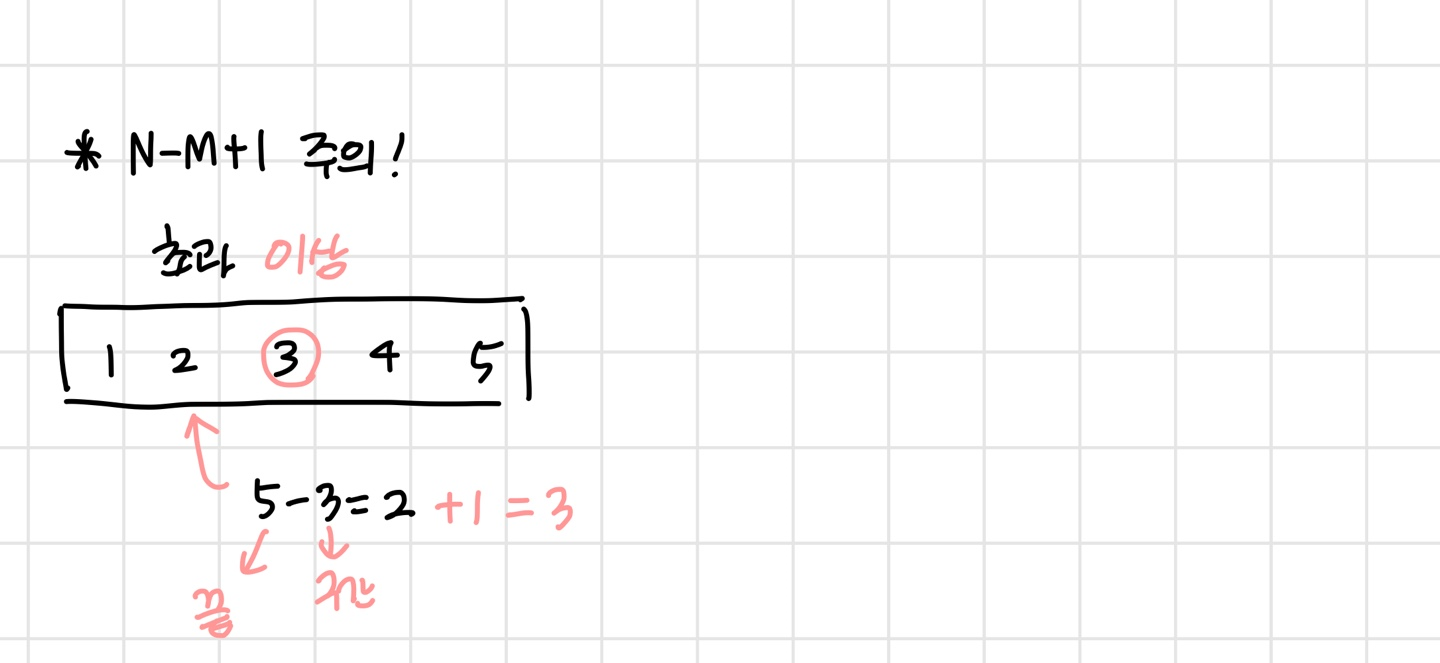 * N-M+1 주의!
초과 이상
1 2 3 4 5
5-3=2 +1=3
끝 구간